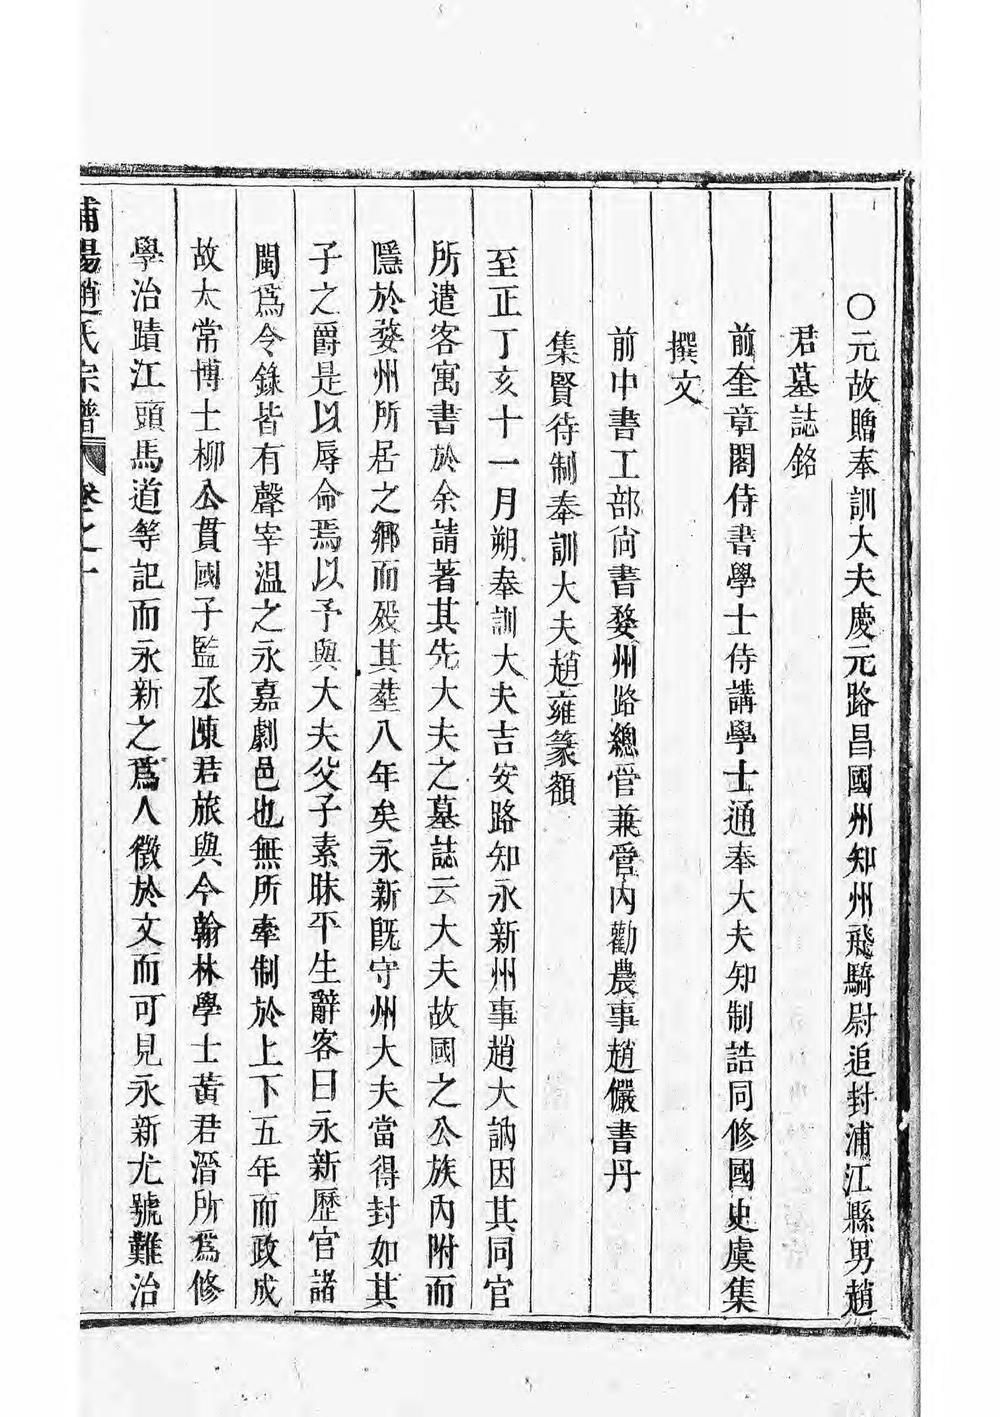 ○元故贈奉訓大夫慶元路昌國州知州飛騎尉追封浦江縣男趙
君墓誌銘
前奎章閣侍書學士侍講學士通奉大夫知制誥同修國史虞集
撰文
前中書工部尚書婺州路總管兼管內勸農事趙儼書丹
集賢待制奉訓大夫趙雍篆額
至正丁亥十一月朔奉訓大夫吉安路知永新州事趙大訥因其同官
所遣客寓書於余請著其先大夫之墓誌云大夫故國之公族內附而
隱於婺州所居之鄉而歿其塟八年矣永新旣守州大夫當得封如其
子之爵是以辱命焉以予與大夫父子素昧平生辭客曰永新歷官諸
閩爲令錄皆有聲宰温之永嘉劇邑也無所牽制於上下五年而政成
故太常博士柳公貫國子監丞陳君旅與今翰林學士黃君溍所爲修
學治蹟江頭馬道等記而永新之爲人徵於文而可見永新尤號難治
浦陽趙氏宗譜 卷之一